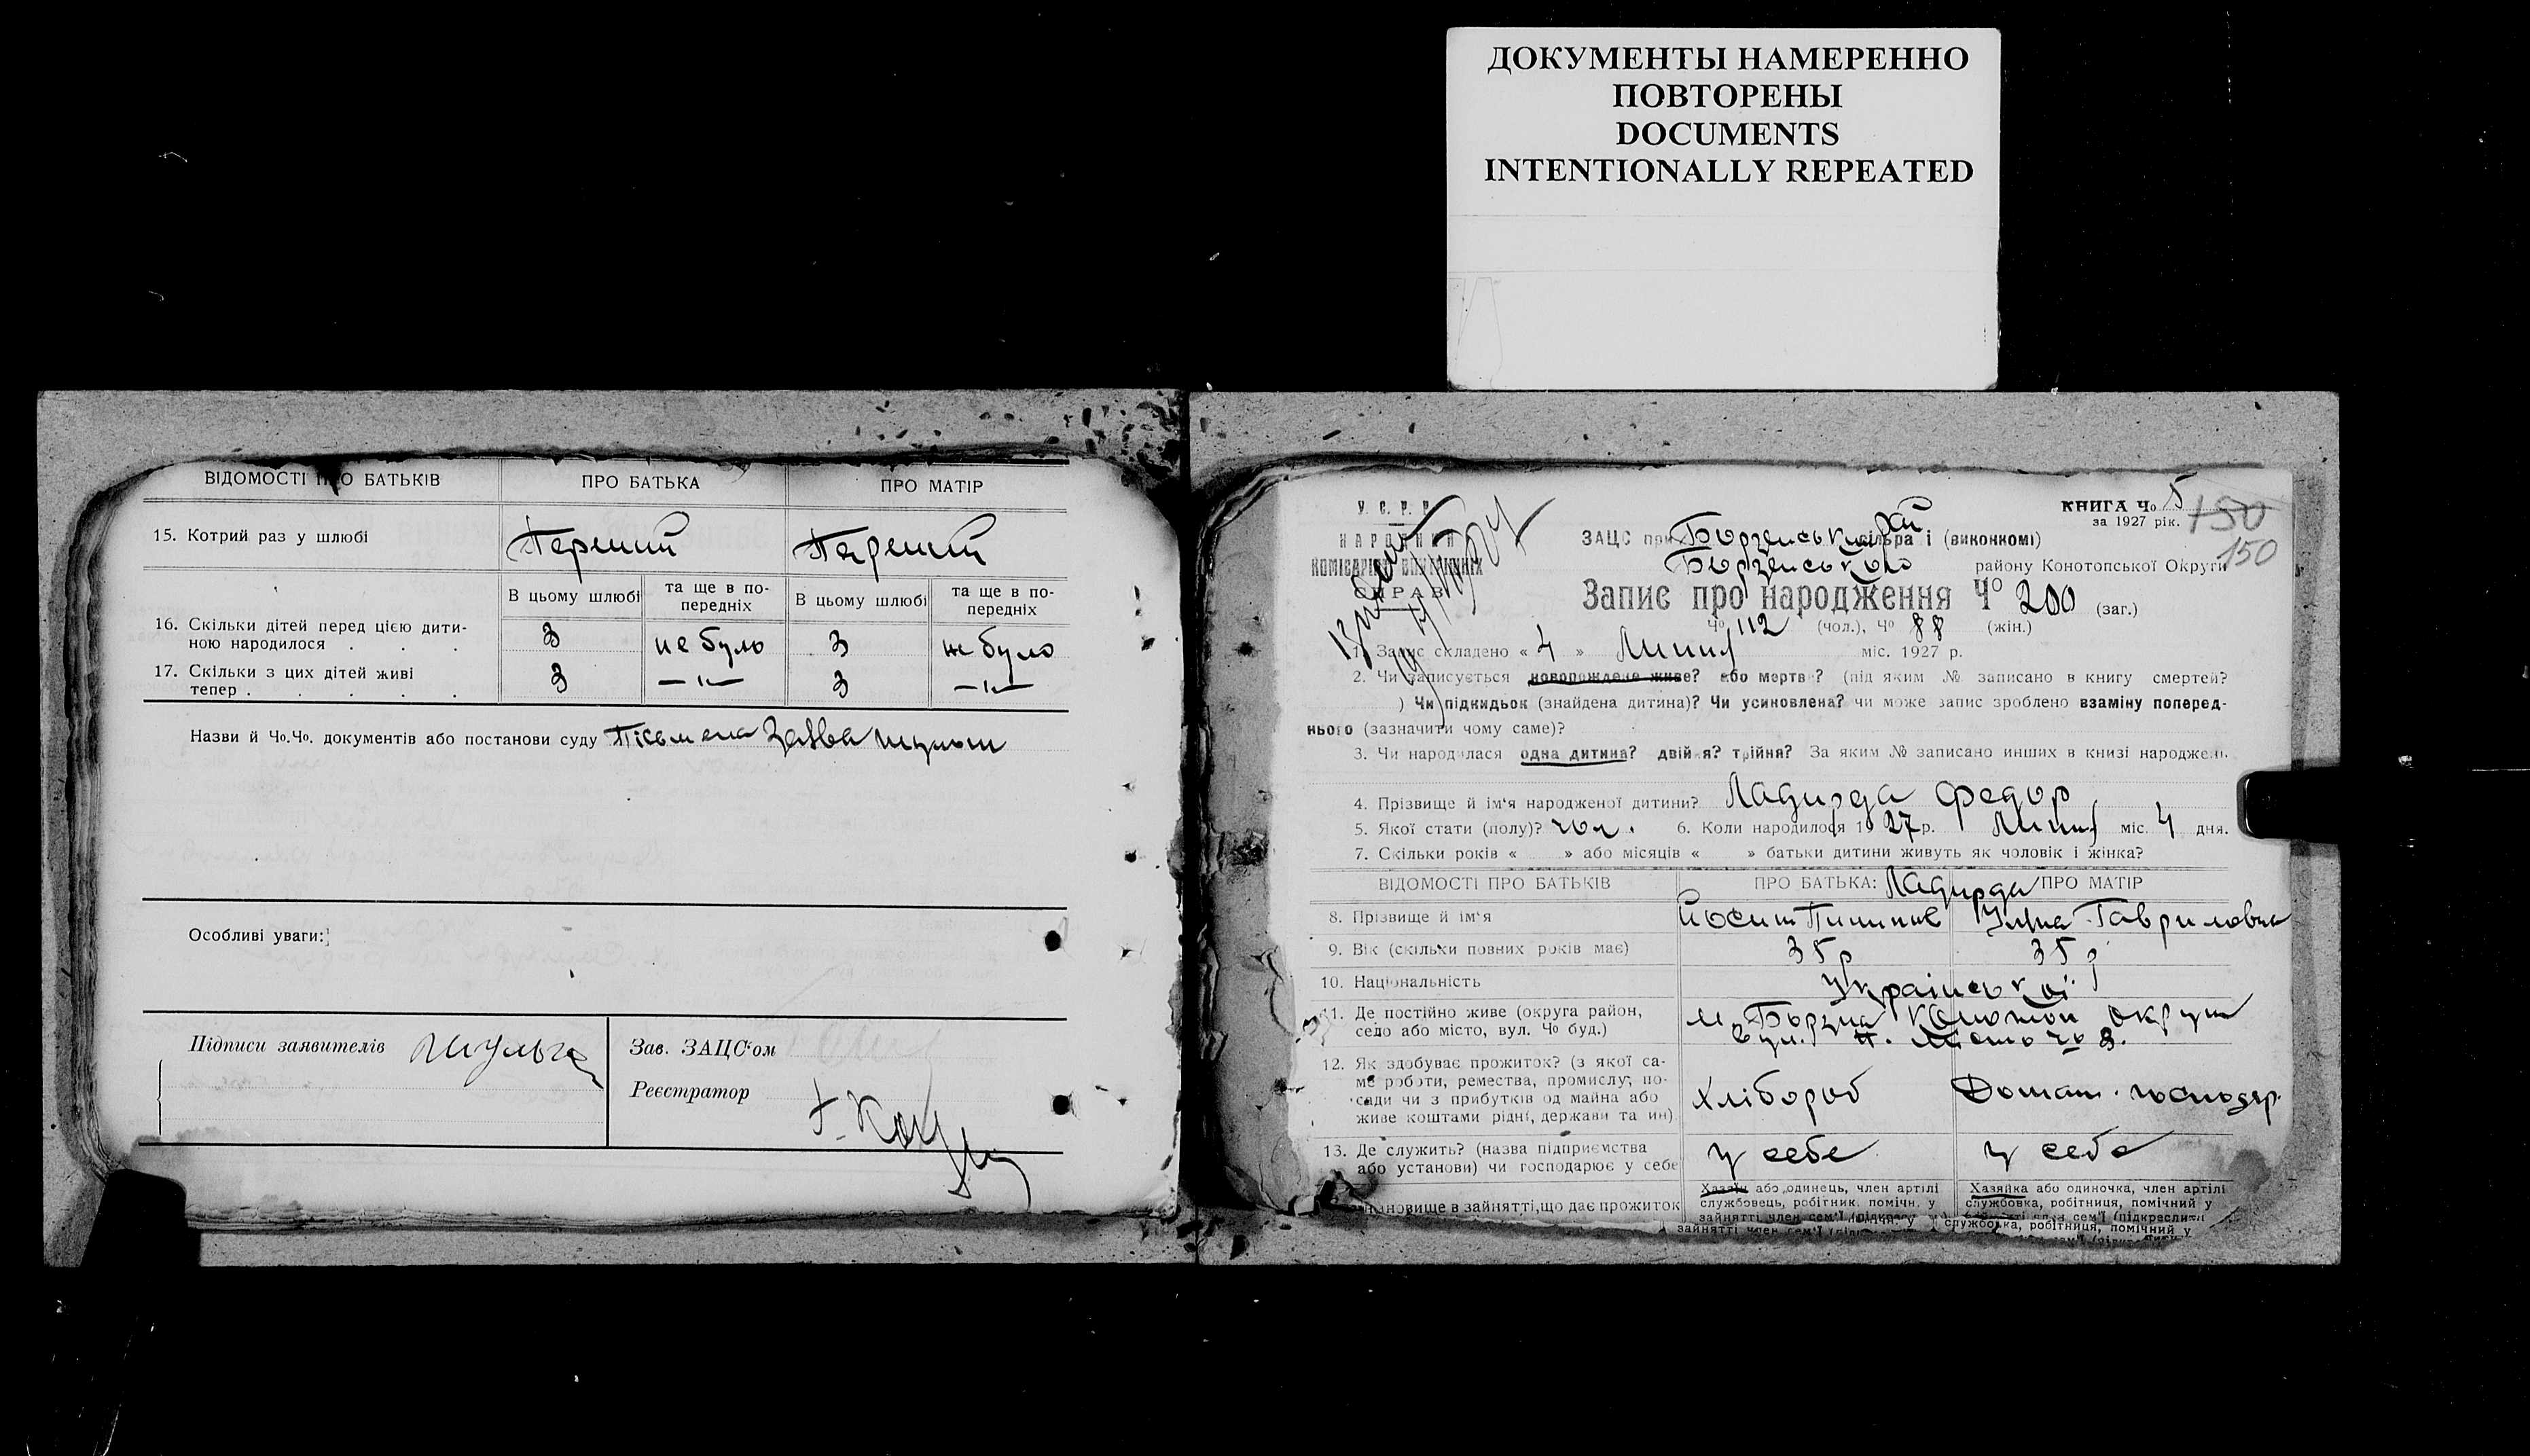 ДОКУМЕНТЫ НАМЕРЕННО
ПОВТОРЕНЫ
DOCUMENTS
INTENTIONALLY REPEATED
ВІДОМОСТІ ПРО БАТЬКІВ ПРО БАТЬКА ПРО МАТІР
15. Котрий раз у шлюбі Перший Перший
В цьому шлюбі та ще в по-передніх В цьому шлюбі та ще в по-передніх
16. Скільки дітей перед цією дити-
ною народилося . . . 3 не було 3 не було
17. Скільки з цих дітей живі
тепер . . . . . 3 —"— 3 —"—
Назви й Чо.Чо. документів або постанови суду Письмена заява
Особливі уваги:
Підписи заявителів Шульга Зав. ЗАЦС'ом
Реєстратор
КНИГА Чо 5
за 1927 рік. 150
150
У. С. Р. Р.
НАРОДНИЙ
КОМІСАРІЯТ ВНУТРІШНІХ
СПРАВ
ЗАЦС при Борзенській сільраді (виконкомі)
Борзенського району Конотопської Округи
Запис про народження Чо 200 (заг.)
Чо 112 (чол.), Чо 88 (жін.)
1. Запис складено « 4 » Липня міс. 1927 р.
2. Чи записується новорождене живе? або мертве? (під яким № записано в книгу смертей?
) Чи підкидьок (знайдена дитина)? Чи усиновлена? чи може запис зроблено взаміну поперед-
нього (зазначити чому саме)?
3. Чи народилася одна дитина? двійня? трійня? За яким № записано инших в книзі народжень
4. Прізвище й ім'я народженої дитини? Ладирда Федор
5. Якої стати (полу)? чол. 6. Коли народилося 1927 р. Липня міс. 4 дня.
7. Скільки років « » або місяців « » батьки дитини живуть як чоловік і жінка?
ВІДОМОСТІ ПРО БАТЬКІВ ПРО БАТЬКА: Ладирда ПРО МАТІР
8. Прізвище й ім'я Йосип Гавриловна
9. Вік (скільки повних років має) 35 р 35 р
10. Національність Української
11. Де постійно живе (округа район, м. Борзна Конотоп округи
село або місто, вул. Чо буд.) вул. Н. Місто чо 8.
12. Як здобуває прожиток? (з якої са-
ме роботи, ремества, промислу, по-
сади чи з прибутків од майна або Хлібороб Домаш. господар.
живе коштами рідні, держави та ин)
13. Де служить? (назва підприємства у себе у себе
або установи) чи господарює у себе
становище в зайнятті, що дає прожиток
Хазяїн або одинець, член артілі
службовець, робітник. помічн. у
зайнятті член сем'ї
Хазяйка або одиночка, член артілі
службовка, робітниця, помічний у
сем'ї (підкреслити
зайнятті член сем'ї
службовка, робітниця, помічний у